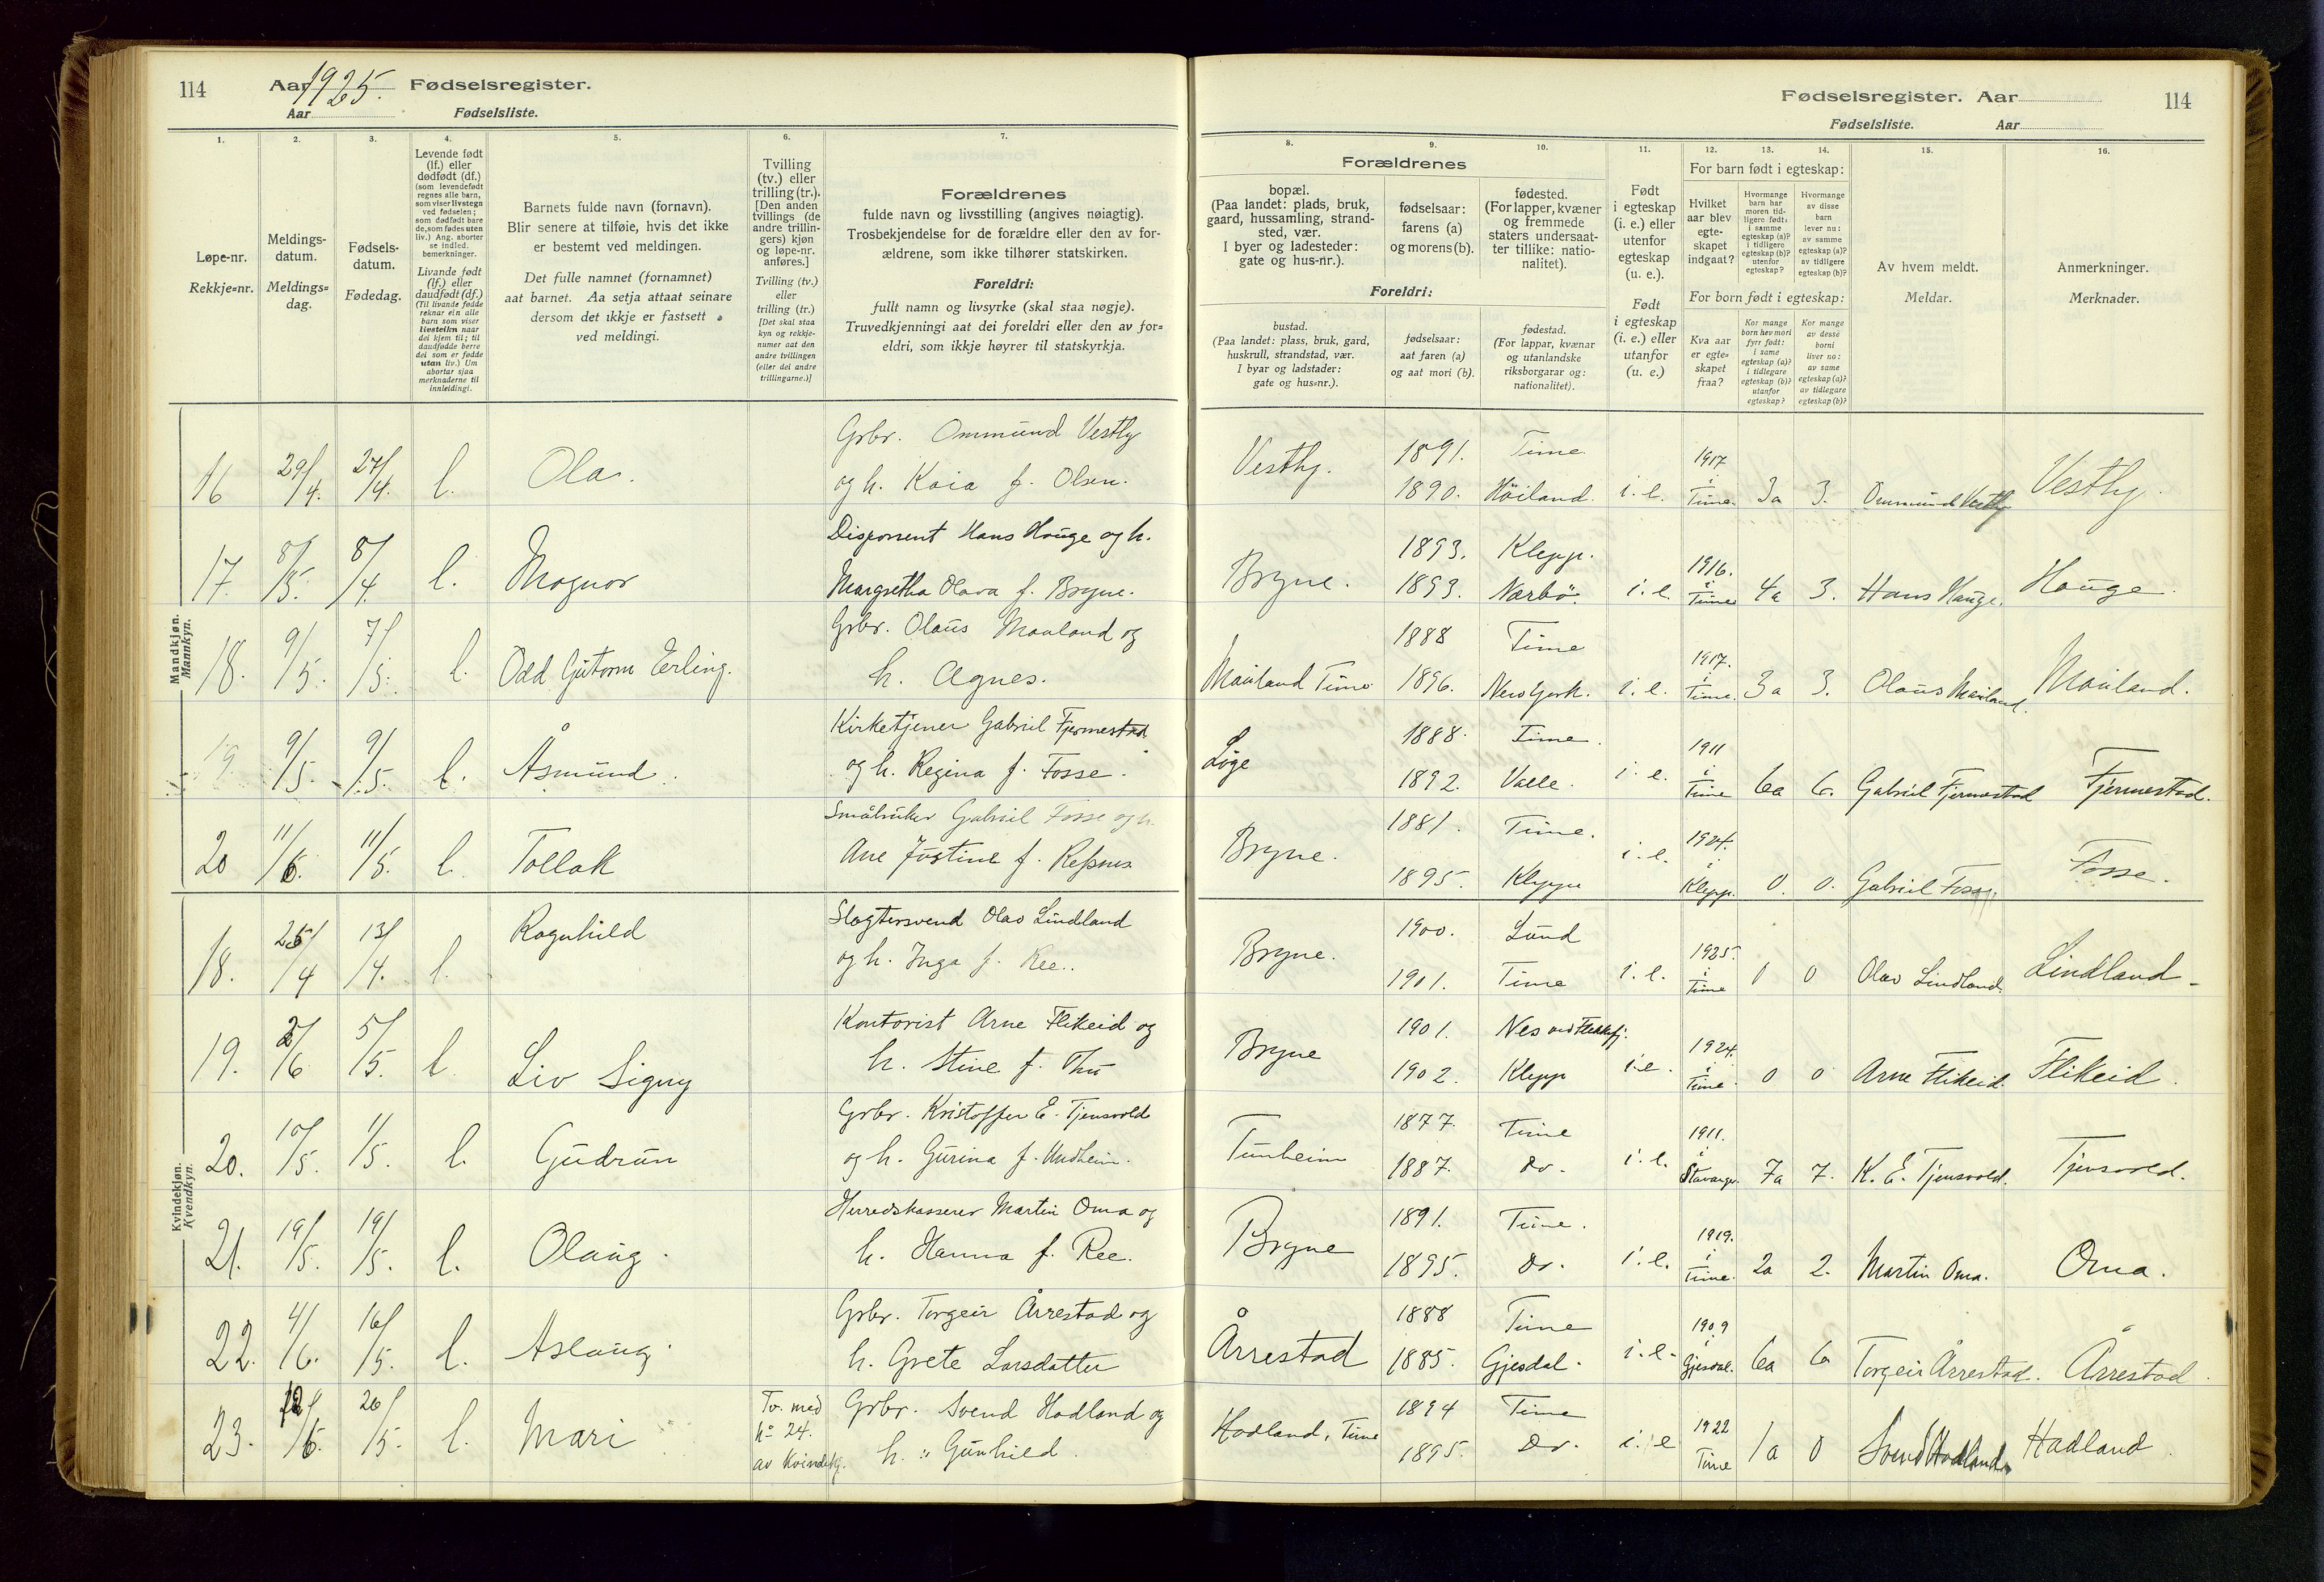 114
Aar 1925. Fødselsregister.
Aar Fødselsliste.
1. 2. 3. 4. 5. 6. 7.
Løpe-nr.
Rekkje-nr.
Meldings-
datum.
Meldings-
dag.
Fødsels-
datum.
Fødedag.
Levende født
(lf.) eller
dødfødt (df.)
(som levendefødt
regnes alle barn,
som viser livstegn
ved fødselen;
som dødfødt bare
de, som fødes uten
liv.) Ang. aborter
se indled.
bemerkninger.
Livande født
(lf.) eller
daudfødt (df.)
(Til livande fødde
reknar ein alle
barn som viser
livsteikn naar
dei kjem til; til
daudfødde berre
dei som er fødde
utan liv.) Um
abortar sjaa
merknaderne til
innleidingi.
Barnets fulde navn (fornavn).
Blir senere at tilføie, hvis det ikke
er bestemt ved meldingen.
Det fulle namnet (fornamnet)
aat barnet. Aa setja attaat seinare
dersom det ikkje er fastsett
ved meldingi.
Tvilling
(tv.) eller
trilling (tr.).
[Den anden
tvillings (de
andre trillin-
gers) kjøn
og løpe-nr.
anføres.]
Tvilling (tv.)
eller
trilling (tr.)
[Det skal staa
kyn og rekkje-
numer aat den
andre tvillingen
(eller dei andre
trillingarne.)]
Forældrenes
fulde navn og livsstilling (angives nøiagtig).
Trosbekjendelse for de forældre eller den av for-
ældrene, som ikke tilhører statskirken.
Foreldri:
fullt namn og livsyrke (skal staa nøgje).
Truvedkjenningi aat dei foreldri eller den av for-
eldri, som ikkje høyrer til statskyrkja.
Mandkjøn.
Mannkyn.
16 29/4. 27/4. l. Ola. Grbr. Ommund Vestly
og h. Kaia f. Olsen.
17. 8/5. 8/4. l. Magnar Disponent Hans Hauge og h.
Margretha Olava f. Bryne.
18. 9/5. 7/5. l. Odd Gutorm Erling. Grbr. Olaus Mauland og
h. Agnes.
19. 9/5. 9/5. l. Åsmund. Kirketjener Gabriel Fjermestad
og h. Regina f. Fosse.
20 11/6. 11/5. l. Tollak Småbruker Gabriel Fosse og h.
Ane Justine f.
Kvindekjøn.
Kvendkyn.
18. 25/4 13/4. l. Ragnhild Slagtersvend Olav Lindland
og h. Inga f. Ree.
19. 2/6 5/5. l. Liv Signy Kontorist Arne Flikeid og
h. Stine f. Thu
20. 10/5. 1/5. l. Gudrun Grbr. Kristoffer E. Tjensvold
og h. Gurina f. Undheim.
21. 19/5. 19/5. l. Olaug. Herredskasserer Martin Oma og
h. Hanna f. Ree.
22. 4/6. 16/5. l. Aslaug. Grbr. Torgeir Årrestad og
h. Grete Larsdatter
23. /6. 26/5. l. Mari Tv. med
no 24.
av Kvindekj. Grbr. Svend Hadland og
h. " Gunhild.
Fødselsregister. Aar 114
Fødselsliste. Aar
8. 9. 10. 11. 12. 13. 14. 15. 16.
Forældrenes
bopæl.
(Paa landet: plads, bruk,
gaard, hussamling, strand-
sted, vær.
I byer og ladesteder:
gate og hus-nr.).
fødselsaar:
farens (a)
og morens (b).
fødested.
(For lapper, kvæner
og fremmede
staters undersaat-
ter tillike: natio-
nalitet).
Foreldri:
bustad.
(Paa landet: plass, bruk, gard,
huskrull, strandstad, vær.
I byar og ladstader:
gate og hus-nr.).
fødselsaar:
aat faren (a)
og aat mori (b).
fødestad.
(For lappar, kvænar
og utanlandske
riksborgarar og:
nationalitet).
Født
i egteskap
(i. e.) eller
utenfor
egteskap
(u. e.).
Født
i egteskap
(i. e.) eller
utanfor
(u. e.)
For barn født i egteskap:
Hvilket
aar blev
egte-
skapet
indgaat?
Hvormange
barn har
moren tid-
ligere født:
i samme
egteskap (a)?
i tidligere
egteskap (b)?
utenfor
egteskap?
Hvormange
av disse
barn
lever nu:
av samme
egteskap (a)?
av tidligere
egteskap (b)?
For born født i egteskap:
Kva aar
er egte-
skapet
fraa?
Kor mange
born hev mori
fyrr født:
i same
egteskap (a)?
i tidlegare
egteskap (b)?
utanfor
egteskap?
Kor mange
av desse
borni
liver no:
av same
egteskap (a)?
av tidlegare
egteskap (b)?
Av hvem meldt.
Meldar.
Anmerkninger.
Merknader.
Vestly. 1891. Time
1890. Höiland. i. e. 1917 i Time. 3a 3. Ommund Vestly Vestly.
Bryne. 1893. Klepp.
1893. Nærbö. i. e. 1916. i Time 4a 3. Hans Hauge. Hauge.
Mauland Time 1888 Time
1896. New York. i. e. 1917. i Time. 3a 3. Olaus Mauland. Mauland.
Lõge 1888. Time.
1892. Valle. i. e. 1911 i Time 6a 6. Gabriel Fjermestad Fjermestad.
Bryne. 1881. Time.
1895. Klepp i. e. 1924. i Klepp. 0. 0. Gabriel Fosse. Fosse.
Bryne. 1900. Lund
1901. Time i. e. 1925. i Time 0 0 Olav Lindland. Lindland
Bryne 1901. Nes ved Flekkefj.
1902. Klepp i. e. 1924. i Time. 0 0 Arne Flikeid. Flikeid.
Tunheim 1877. Time
1887. Do. i. e. 1911. i Stavanger. 7a 7. K. E. Tjensvold. Tjensvold.
Bryne 1891. Time.
1895. Do. i. e. 1919. i Time. 2a 2. Martin Oma. Oma.
Årrestad 1888 Time
1885. Gjesdal. i. e. 1909 i Gjesdal. 6a 6 Torgeir Årrestad. Årrestad.
Hadland, Time 1894 Time
1895. Do. i. e 1922 Time 1a 0 Svend Hadland. Hadland.